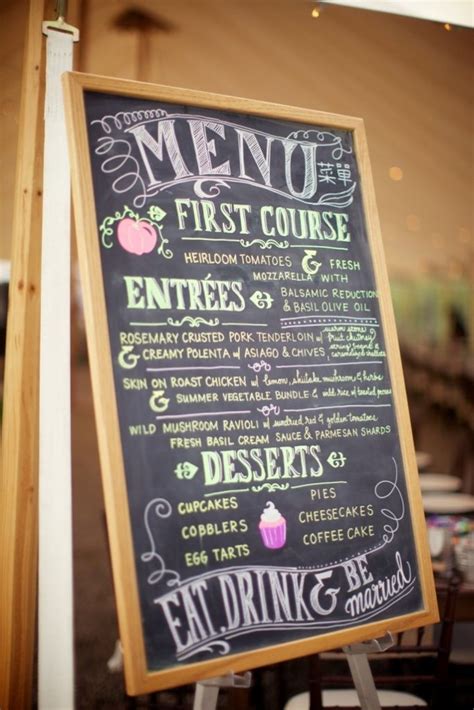 MENU 菜單
FIRST COURSE
HEIRLOOM TOMATOES & FRESH
MOZZARELLA WITH
BALSAMIC REDUCTION
& BASIL OLIVE OIL
ENTRÉES
ROSEMARY CRUSTED PORK TENDERLOIN w/ warm stone fruit chutney
& CREAMY POLENTA w/ ASIAGO & CHIVES
SKIN ON ROAST CHICKEN w/ lemon, shiitake mushroom & herbs
& SUMMER VEGETABLE BUNDLE & wild rice w/ toasted pecans
WILD MUSHROOM RAVIOLI w/ sundried red & golden tomatoes
FRESH BASIL CREAM SAUCE & PARMESAN SHARDS
DESSERTS
CUPCAKES PIES
COBBLERS CHEESECAKES
EGG TARTS COFFEE CAKE
EAT, DRINK & BE married